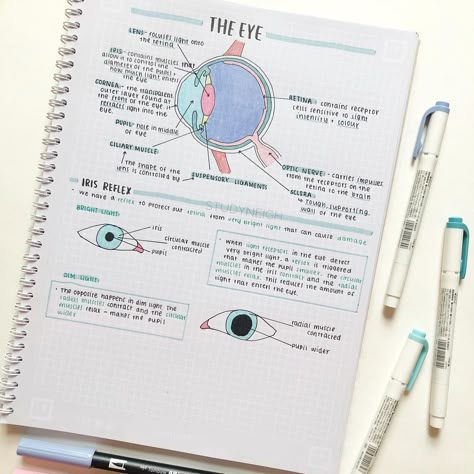 THE EYE
LENS - focuses light onto
the retina
IRIS - contains muscles that
allow it to control the
diameter of the pupil +
how much light enters
the eye
CORNEA - the transparent
outer layer found at
the front of the eye. it
refracts light into the
eye.
PUPIL - hole in middle
of eye
CILIARY MUSCLE
the shape of the
lens is controlled by
SUSPENSORY LIGAMENTS
RETINA - contains receptor
cells sensitive to light
intensity + colour
OPTIC NERVE - carries impulses
from the receptors on
the retina to the brain
SCLERA
tough, supporting
wall of the eye
STUDYNEIGH
- IRIS REFLEX
- we have a reflex to protect our retina from very bright light that can cause damage
BRIGHT LIGHT:
iris
circular muscle
contracted
pupil
• When light receptors in the eye detect
very bright light, a reflex is triggered
that makes the pupil smaller. The circular
muscles in the iris contract and the radial
muscles relax. this reduces the amount of
light that enters the eye.
DIM LIGHT:
• The opposite happens in dim light. the
radial muscles contract and the circular
muscles relax - makes the pupil
wider
radial muscle
contracted
pupil wider